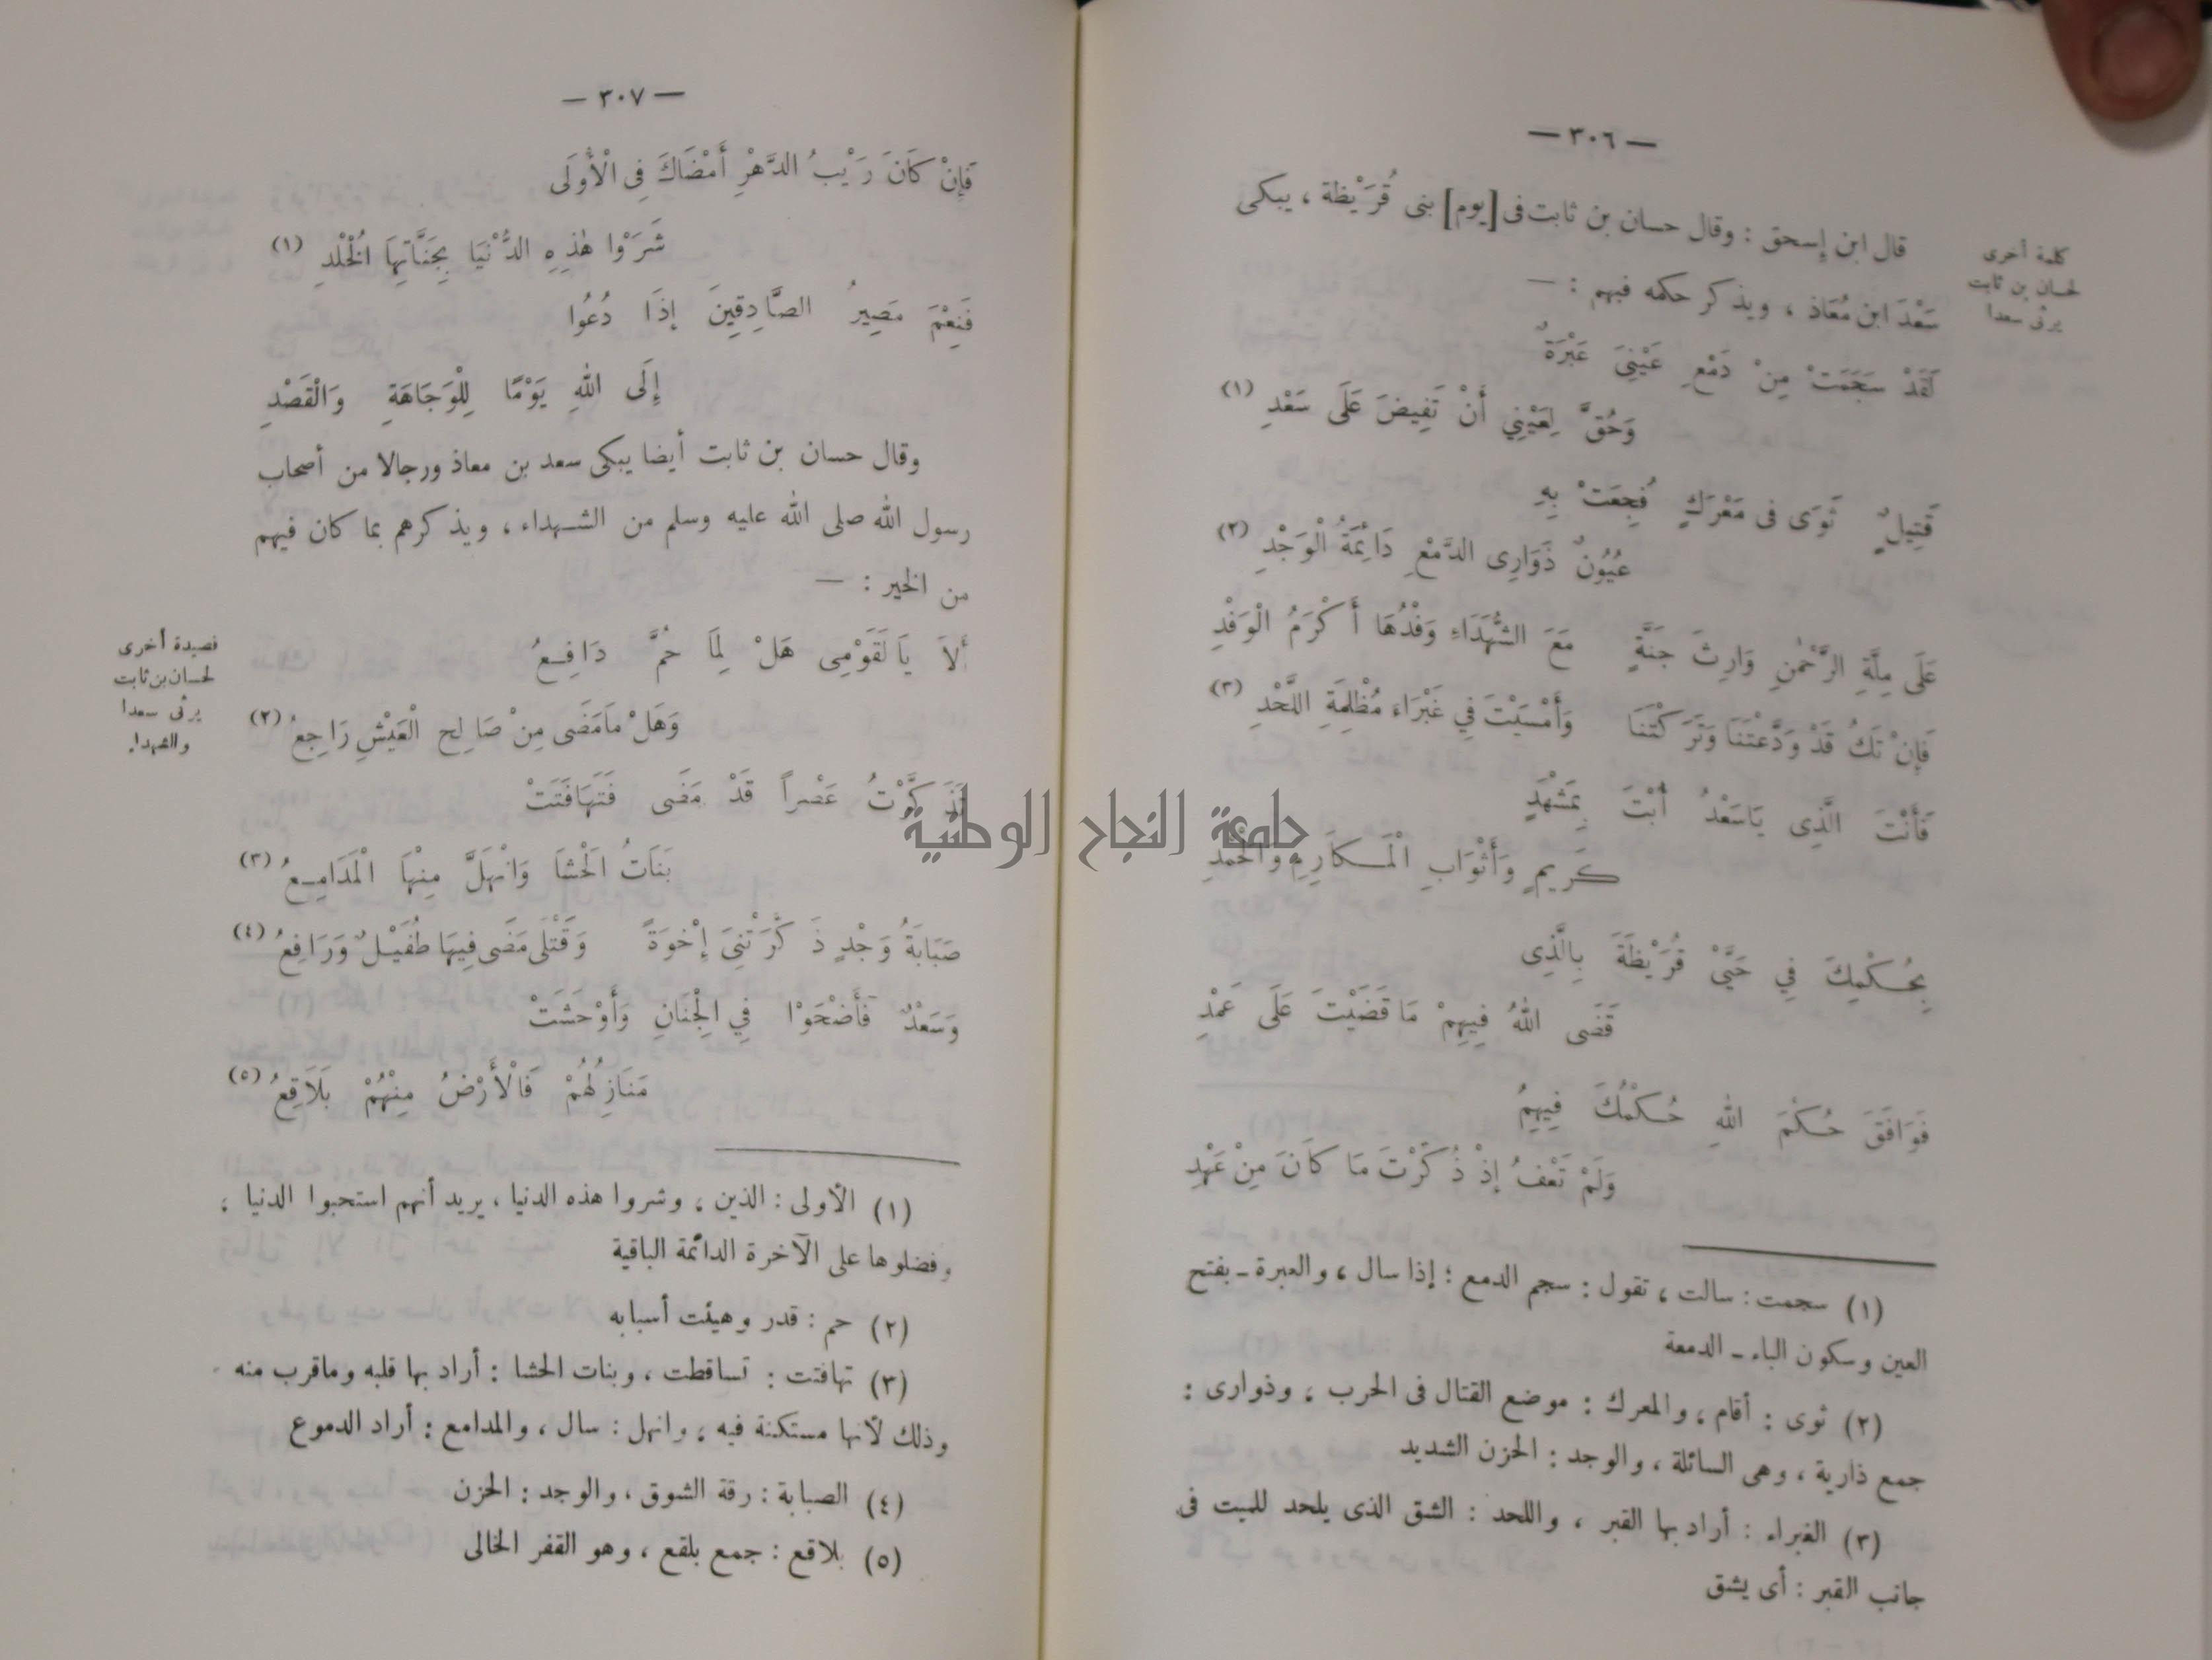 — ٣٠٦ —
كلمة أخرى
لحسان بن ثابت
يرثى سعدا
قال ابن إسحق : وقال حسان بن ثابت فى [يوم] بنى قُرَيْظة ، يبكى
سَعْدَ ابن مُعَاذ ، ويذكر حكمه فيهم : —
لَقَدْ سَجَمَتْ مِنْ دَمْعِ عَيْنِىَ عَبْرَةٌ
وَحُقَّ لِعَيْنِي أَنْ تَفِيضَ عَلَى سَعْدِ (١)
قَتِيلٌ ثَوَى فى مَعْرَكٍ فُجِعَتْ بِهِ
عُيُونٌ ذَوَارِى الدَّمْعِ دَائِمَةُ الْوَجْدِ (٢)
عَلَى مِلَّةِ الرَّحْمٰنِ وَارِثَ جَنَّةٍ مَعَ الشُّهَدَاءِ وَفْدُهَا أَكْرَمُ الْوَفْدِ
فَإِنْ تَكُ قَدْ وَدَّعْتَنَا وَتَرَكْتَنَا وَأَمْسَيْتَ فِي غَبْرَاءَ مُظْلِمَةِ اللَّحْدِ (٣)
فَأَنْتَ الَّذِى يَاسَعْدُ أُبْتَ بِمَشْهَدٍ
كَرِيمٍ وَأَثْوَابِ الْمَكَارِمِ وَالْحَمْدِ
بِحُكْمِكَ فِي حَيَّىْ قُرَيْظَةَ بِالَّذِى
قَضَى اللهُ فِيهِمْ مَا قَضَيْتَ عَلَى عَمْدِ
فَوَافَقَ حُكْمَ اللهِ حُكْمُكَ فِيهِمُ
وَلَمْ تَعْفُ إِذْ ذُكِّرْتَ مَا كَانَ مِنْ عَهْدِ
(١) سجمت : سالت ، تقول : سجم الدمع ؛ إذا سال ، والعبرة ـ بفتح
العين وسكون الباء ـ الدمعة
(٢) ثوى : أقام ، والمعرك : موضع القتال فى الحرب ، وذوارى :
جمع ذارية ، وهى السائلة ، والوجد : الحزن الشديد
(٣) الغبراء : أراد بها القبر ، واللحد : الشق الذى يلحد للميت فى
جانب القبر : أى يشق
— ٣٠٧ —
فَإِنْ كَانَ رَيْبُ الدَّهْرِ أَمْضَاكَ فِى الْأُولَى
شَرَوْا هٰذِهِ الدُّنْيَا بِجَنَّاتِهَا الْخُلْدِ (١)
فَنِعْمَ مَصِيرُ الصَّادِقِينَ إِذَا دُعُوا
إِلَى اللهِ يَوْمًا لِلْوَجَاهَةِ وَالْقَصْدِ
وقال حسان بن ثابت أيضا يبكى سعد بن معاذ ورجالا من أصحاب
رسول الله صلى الله عليه وسلم من الشهداء ، ويذكرهم بما كان فيهم
من الخير : —
قصيدة أخرى
لحسان بن ثابت
يرثى سعدا
والشهداء
أَلاَ يَا لَقَوْمِى هَلْ لِمَا حُمَّ دَافِعُ
وَهَلْ مَا مَضَى مِنْ صَالِحِ الْعَيْشِ رَاجِعُ (٢)
تَذَكَّرْتُ عَصْراً قَدْ مَضَى فَتَهَافَتَتْ
بَنَاتُ الْحَشَا وَانْهَلَّ مِنْهَا الْمَدَامِعُ (٣)
صَبَابَةُ وَجْدٍ ذَكَّرَتْنِىَ إِخْوَةً وَقَتْلَى مَضَى فِيهَا طُفَيْلٌ وَرَافِعُ (٤)
وَسَعْدٌ فَأَضْحَوْا فِي الْجِنَانِ وَأَوْحَشَتْ
مَنَازِلُهُمْ فَالْأَرْضُ مِنْهُمْ بَلَاقِعُ (٥)
(١) الألى : الذين ، وشروا هذه الدنيا ، يريد أنهم استحبوا الدنيا ،
وفضلوها على الآخرة الدائمة الباقية
(٢) حم : قدر وهيئت أسبابه
(٣) تهافتت : تساقطت ، وبنات الحشا : أراد بها قلبه وماقرب منه
وذلك لأنها مستكنة فيه ، وانهل : سال ، والمدامع : أراد الدموع
(٤) الصبابة : رقة الشوق ، والوجد : الحزن
(٥) بلاقع : جمع بلقع ، وهو القفر الخالى
جامعة النجاح الوطنية